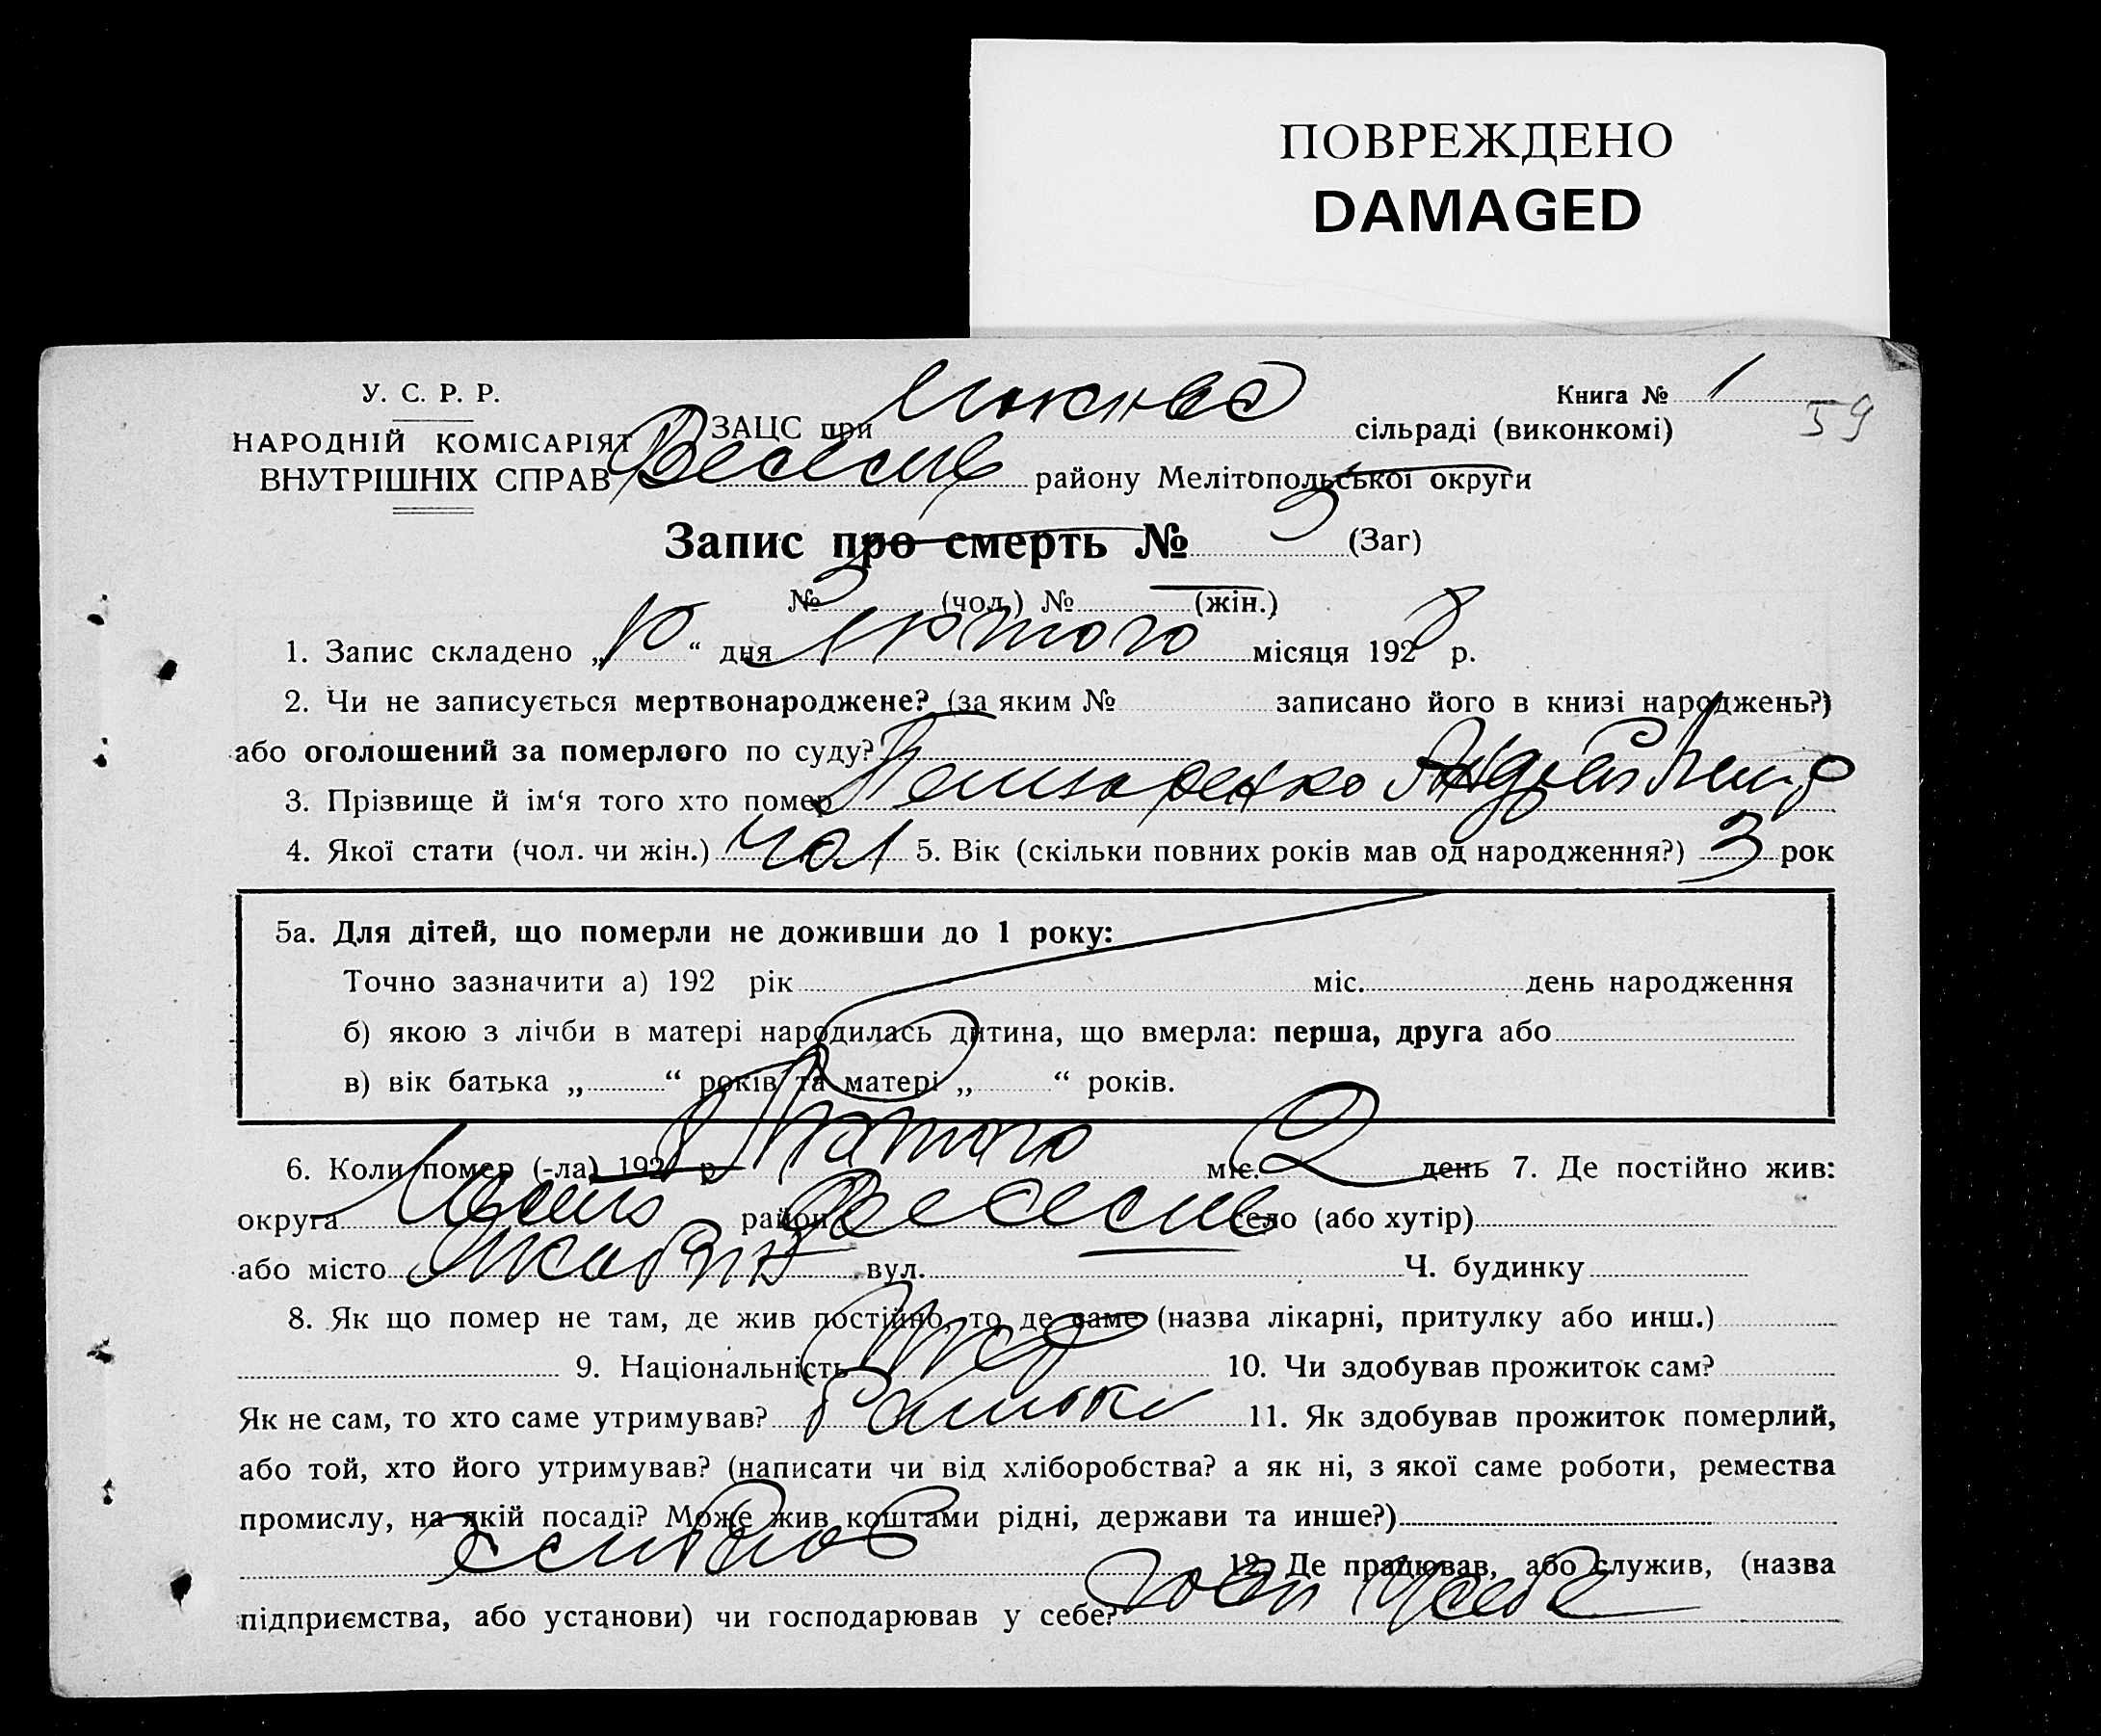 ПОВРЕЖДЕНО
DAMAGED
У. С. Р. Р.
Книга № 1
59
НАРОДНІЙ КОМІСАРІЯТ
ВНУТРІШНІХ СПРАВ
ЗАЦС при сільраді (виконкомі)
району Мелітопольської округи
Запис про смерть № 3 (Заг)
№ 3 (чол.) № (жін.)
1. Запис складено „10“ дня Лютого місяця 1928 р.
2. Чи не записується мертвонароджене? (за яким № записано його в книзі народжень?)
або оголошений за померлого по суду?
3. Прізвище й ім‘я того хто помер Андрей
4. Якої стати (чол. чи жін.) чол 5. Вік (скільки повних років мав од народження?) 3 рок
5а. Для дітей, що померли не доживши до 1 року:
Точно зазначити а) 192 рік міс. день народження
б) якою з лічби в матері народилась дитина, що вмерла: перша, друга або
в) вік батька „ “ років та матері „ “ років.
6. Коли помер (-ла) 192 р. Лютого міс. 2 день 7. Де постійно жив:
округа район село (або хутір)
або місто вул. Ч. будинку
8. Як що помер не там, де жив постійно, то де саме (назва лікарні, притулку або инш.)
9. Національність Укр 10. Чи здобував прожиток сам?
Як не сам, то хто саме утримував? батьки 11. Як здобував прожиток померлий,
або той, хто його утримував? (написати чи від хліборобства? а як ні, з якої саме роботи, ремества
промислу, на якій посаді? Може жив коштами рідні, держави та инше?)
12. Де працював, або служив, (назва
підприємства, або установи) чи господарював у себе? у себе